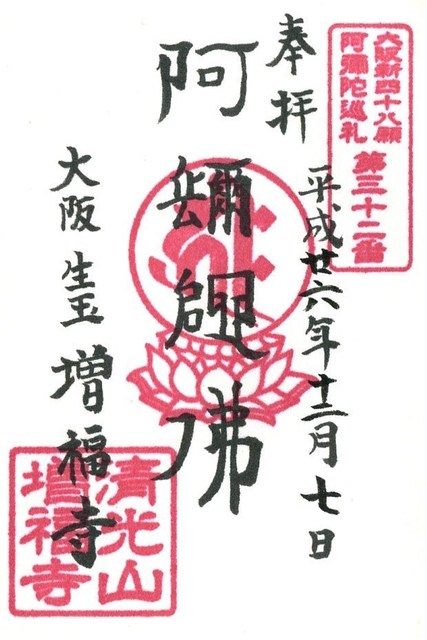 大阪新四十八願
阿彌陀巡礼
第三十二番
奉拝
平成廿六年十二月七日
阿彌陀佛
大阪生玉増福寺
清光山
増福寺